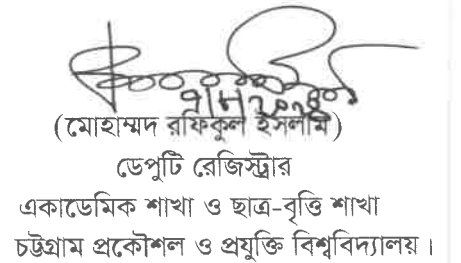 (মোহাম্মদ রফিকুল ইসলাম)
ডেপুটি রেজিস্ট্রার
একাডেমিক শাখা ও ছাত্র-বৃত্তি শাখা
চট্টগ্রাম প্রকৌশল ও প্রযুক্তি বিশ্ববিদ্যালয়।